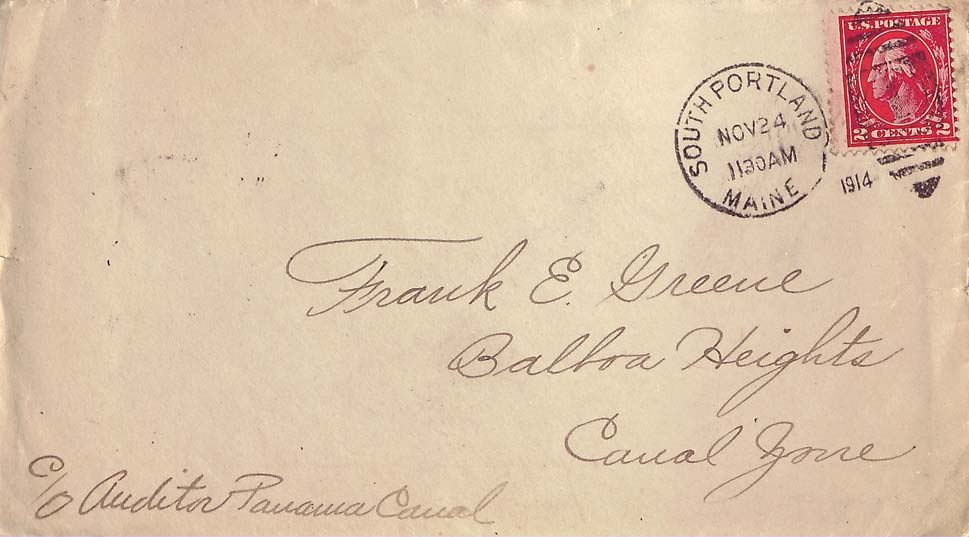 U.S. POSTAGE
2 CENTS 2
SOUTH PORTLAND
NOV 24
1130AM
MAINE
1914
Frank E. Greene
Balboa Heights
Canal Zone
C/O Auditor Panama Canal